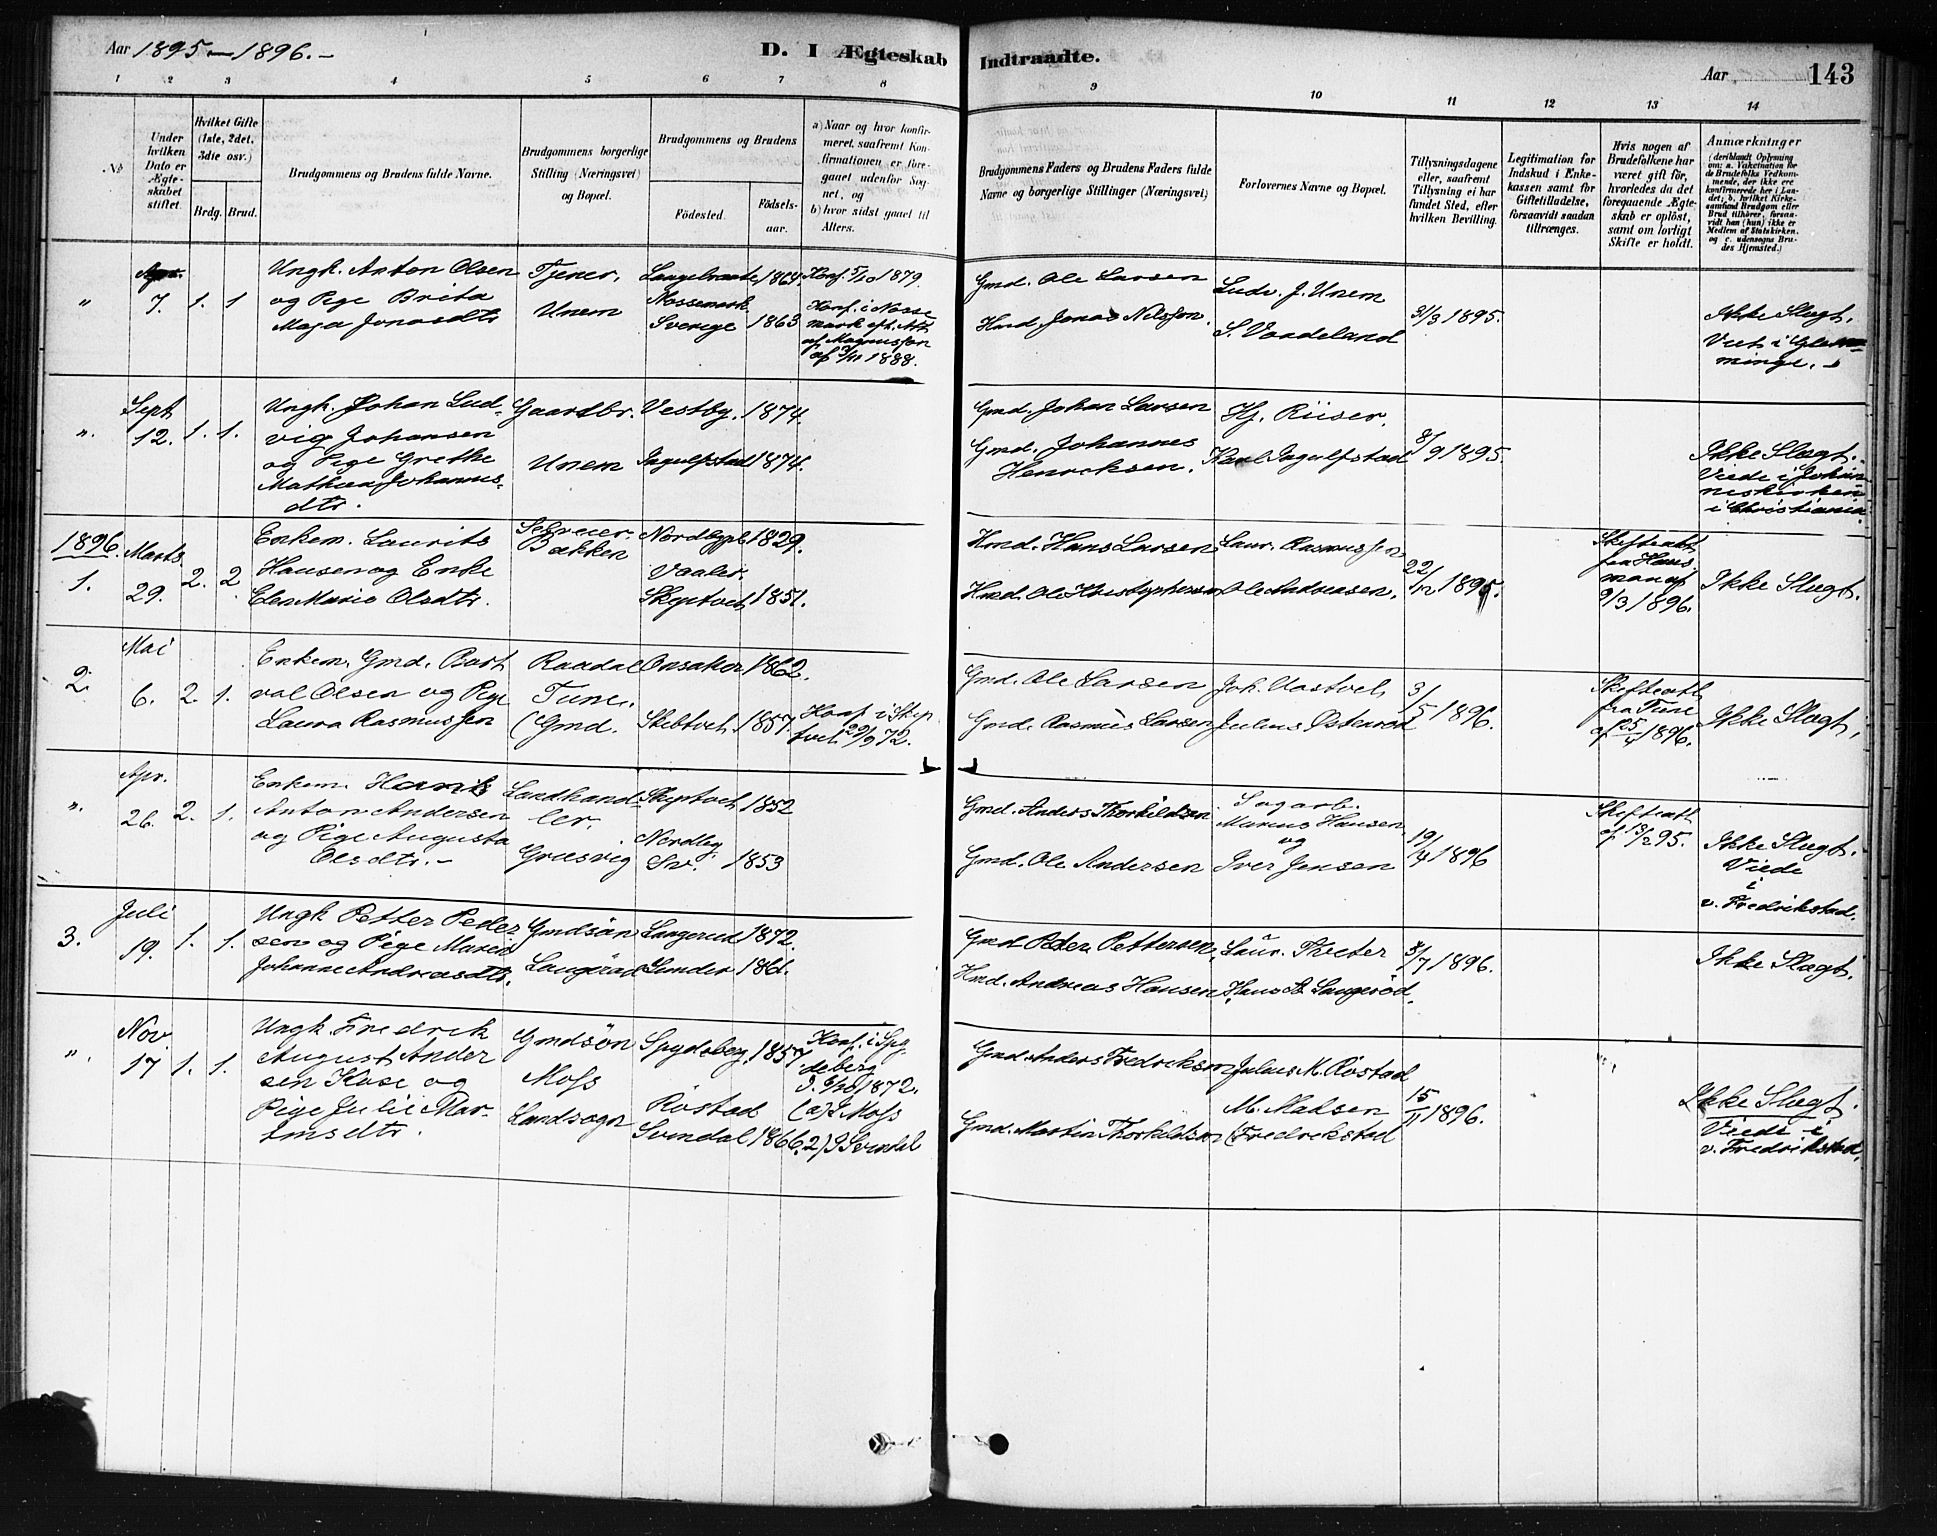 Aar 1895—1896.–
D. I Ægteskab Indtraadte.
Aar 143
1 2 3 4 5 6 7 8 9 10 11 12 13 14
No
Under hvilken Dato er Ægteskabet stiftet.
Hvilket Gifte (1ste, 2det, 3die osv.)
Brdg. Brud.
Brudgommens og Brudens fulde Navne.
Brudgommens borgerlige Stilling (Næringsvei) og Bopæl.
Brudgommens og Brudens
Födested.
Födselsaar.
a) Naar og hvor konfirmeret, saafremt Konfirmationen er foregaaet udenfor Sognet, og
b) hvor sidst gaaet til Alters.
Brudgommens Faders og Brudens Faders fulde Navne og borgerlige Stillinger (Næringsvei)
Forlovernes Navne og Bopæl.
Tillysningsdagene eller, saafremt Tillysning ei har fundet Sted, efter hvilken Bevilling.
Legitimation for Indskud i Enkekassen samt for Giftetilladelse, forsaavidt saadan tiltrænges.
Hvis nogen af Brudefolkene har været gift för, hvorledes da det foregaaende Ægteskab er oplöst, samt om lovligt Skifte er holdt.
Anmærkninger
(deriblandt Oplysning om: a. Vakcination for de Brudefolks Vedkommende, der ikke ere konfirmerede her i Landet; b. hvilket Kirkesamfund Brudgom eller Brud tilhörer, forsaavidt han (hun) ikke er Medlem af Statskirken, og c. udensogns Brudes Hjemsted.)
" 7. 1. 1
Ungk. Anton Olsen
og Pige Brita
Maja Jonasdtr
Tjener,
Unem
Langebraate 1864.
Nossemark
Sverige 1863
Konf. 5/10 1879.
Konf. i Nosse
mark eft. Att
af Magnusson
af 1888.
Gmd. Ole Larsen
Hmd. Jonas Nilsson.
Ludv. J. Unem
S. Vardeland
31/3 1895.
Ikke Slægt.
Viet i Glem
minge.
". Sept 12. 1. 1.
Ungk. Johan Lud-
vig Johansen
og Pige Grethe
Mathea Johannes-
dtr.
Gaardbr.
Unem
Vestby. 1874.
Ingulfstad 1874.
Gmd. Johan Larsen
Gmd. Johannes
Henriksen.
Hj. Riiser.
Karl Ingulfstad
8/9 1895.
Ikke Slægt.
Viede i Johan
neskirken
i Christiania.
1896.
1. Marts 29. 2. 2.
Enkem. Laurits
Hansen og Enke
Elen Marie Olsdtr.
Selveier
Bakken
Nordbype 1829.
Vaaler.
Skiptvet 1851.
Hmd. Hans Larsen
Hmd. Ole Kristophersen
Laur. Rasmussen
Ole Andreasen.
22/12 1895.
Skifteatt
fra Hans
man af
9/3 1896.
Ikke Slægt.
2. Mai 6. 2. 1.
Enkem. Gmd. Bort
val Olsen og Pige
Laura Rasmussen
Raadal
Tune.
(Gmd.
Onsaker 1862.
Skibtvet 1857.
Konf. i Skip
tvet 29/9 72.
Gmd. Ole Larsen
Gmd. Rasmus Larsen
Joh. Aastvet
Julius Österød
3/5 1896.
Skifteatt
fra Tune
af 25/4 1896.
Ikke Slægt,
". Apr. 26. 2. 1.
Enkem. Hans
Anton Andersen
og Pige Augusta
Olsdtr.–
Landhand-
ler.
Græsvig
Skiptvet 1852
Nordby
Sv. 1853
Gmd. Anders Thorkildsen
Gmd. Ole Andersen
Sagarb.
Marius Hansen
og
Iver Jensen
19/4 1896
Skifteatt
af 13/2 95.
Ikke Slægt.
Viede
i
v. Fredrikstad.
3. Juli 19. 1. 1.
Ungk Petter Peder
sen og Pige Maren
Johanne Andreasdtr.
Gmdsön
Langöröd
Langerud 1872.
Sunder 1861.
Gmd. Peder Pettersen
Hmd. Andreas Hansen
Laur. Træter
Hans A. Langeröd.
5/7 1896.
Ikke Slægt.
". Nov. 17 1. 1.
Ungk. Fredrik
August Ander
sen Kase og
Pige Julie Mar-
tinsdtr.
Gmdsön
Moss
Landsogn
Spydeberg. 1857
Röstad
Svindal 1866.
Konf. i Spy
deberg
1872.
(a) I Moss
2) I Svindal
Gmd. Anders Fredriksen
Gmd. Martin Thorkildsen
Julius M. Röstad
M. Madsen
(Fredrikstad
15/11 1896.
Ikke Slægt.
Viede i
v. Fredrikstad.